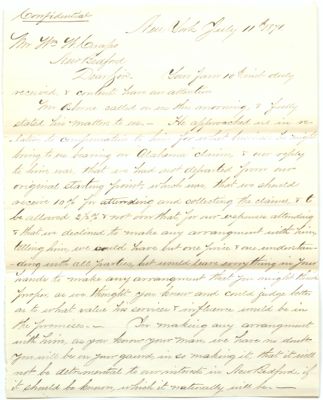 Confidential
New York July 11th 1871
Mr Wm W. Crapo
New Bedford
Dear Sir. Your favr 10th inst duly
received, & contents have an attention
Mr. called on us this morning & fully
stated his matter to us — He approached us in re-
lation to compensation to him for what business he might
bring to us bearing on Alabama claims, & our reply
to him was that we had not departed from our
original starting point, which was that we should
receive 10% for attending and collecting the claims, & to
be allowed 2½% & not on that for our expenses attending
& that we declined to make any arrangement with him,
telling him, we could have but one price & one understan-
ding with all parties, but would leave everything in your
hands to make any arrangement that you might think
proper, as we thought you knew and could judge better
as to what value his services & influence would be in
the premises. — In making any arrangement
with him, as you know your man, we have no doubt
you will be on your guard, in so making it, that it will
not be detrimental to our interests in New Bedford, if
it should be known, which it naturally will be —